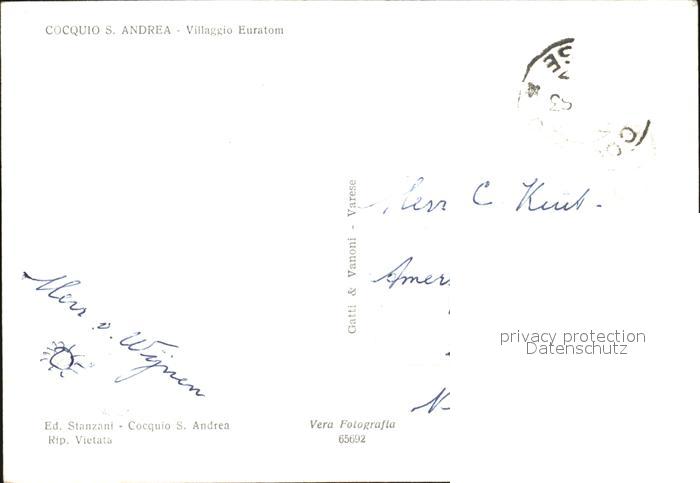 COCQUIO S. ANDREA - Villaggio Euratom
Herr C
Amer
N
Gatti & Vanoni - Varese
Herr v. Wijnen
privacy protection
Datenschutz
Ed. Stanzani - Cocquio S. Andrea
Rip. Vietata
Vera Fotografia
65692